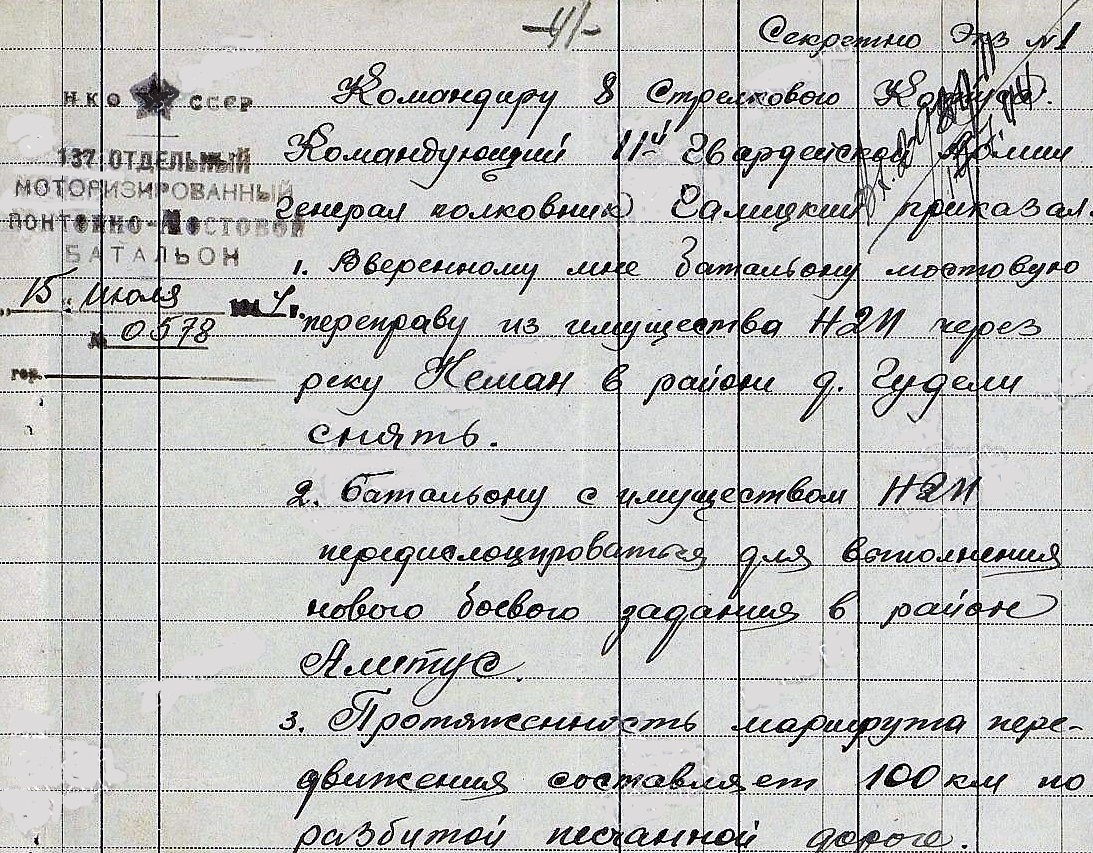 -41-
Секретно Экз №1
НКО СССР
137 ОТДЕЛЬНЫЙ
МОТОРИЗИРОВАННЫЙ
ПОНТОННО-МОСТОВОЙ
БАТАЛЬОН
„15" июля 1944 г.
№ 0578
гор.
Командиру 8 Стрелкового Корпуса.
Командующий 11й Гвардейской Армии
генерал полковник Галицкий приказал.
1. Вверенному мне батальону мостовую
переправу из имущества Н2П через
реку Неман в районе д. Гудели
снять.
2. Батальону с имуществом Н2П
передислоцироваться для выполнения
нового боевого задания в район
Алитус.
3. Протяженность маршрута пере-
движения составляет 100 км по
разбитой песчанной дороге.